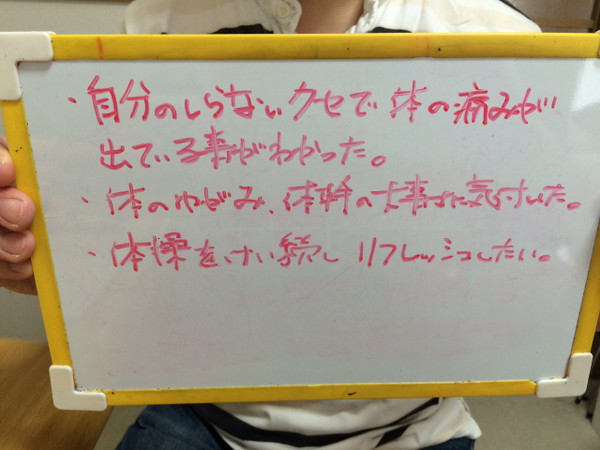 ・自分のしらないクセで体の痛みが
出ている事がわかった。
・体のゆがみ、体幹の大事さに気付いた。
・体操をけい続し リフレッシュしたい。